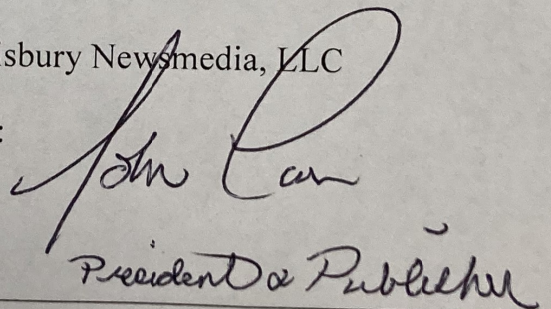 sbury Newsmedia, LLC
:
John Carr
President & Publisher